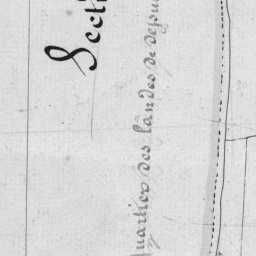 Secti
Quartier des landes de dessu